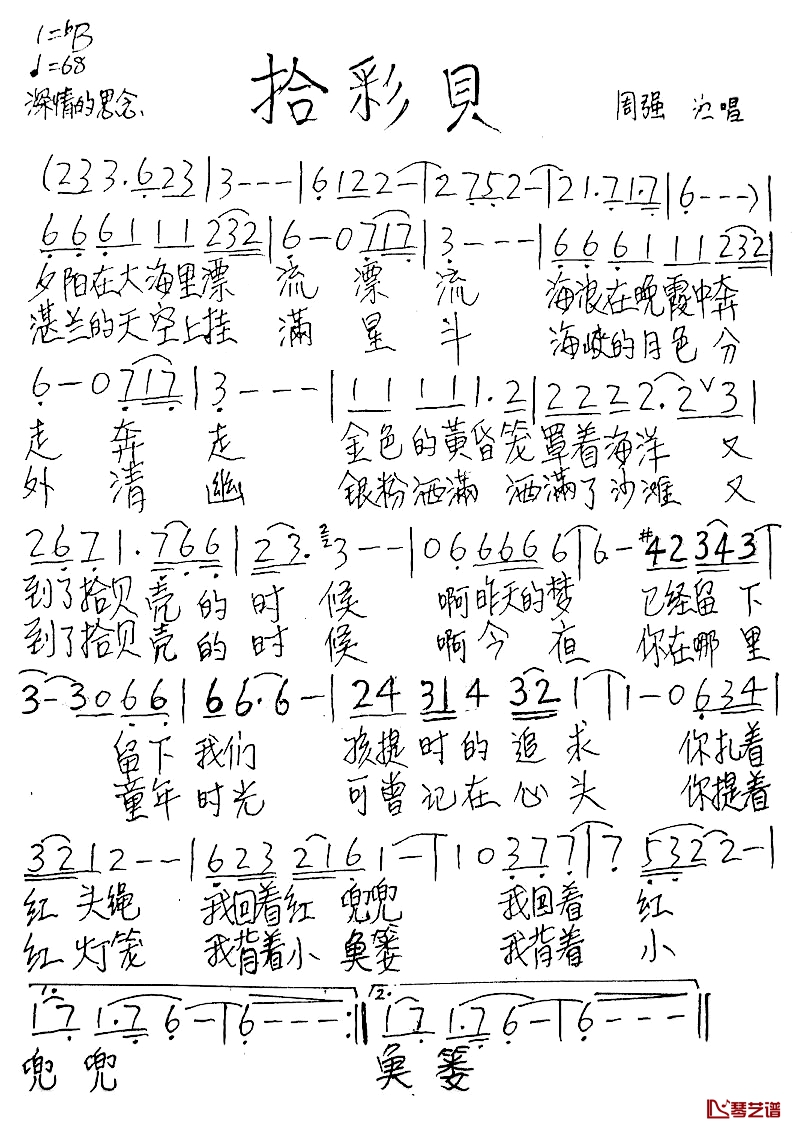 1=♭B
♩=68
深情的思念、
拾彩貝
周强 演唱
(233.623|3---|6122-|2752-|21.71.7|6---)|
666111232|6-0717|3---|666111232|
夕阳在大海里漂 流 漂 流 海浪在晚霞中奔
湛兰的天空上挂 滿 星 斗 海峡的月色分
6-0717|3---|111111.2|2222.2∨3|
走 奔 走 金色的黄昏笼罩着海洋 又
外 清 幽 银粉洒滿 洒滿了沙滩 又
2671.766|23.3--|066666|6-#42343|
到了拾贝壳的时候 啊昨天的梦 已经留下
到了拾贝壳的时候 啊今夜 你在哪里
3-3066|66.6-|24314321|1-0634|
留下我们 孩提时的追求 你扎着
童年时光 可曾记在心头 你提着
3212--|6232161-|10377|75322-|
红头绳 我回着红兜兜 我回着 红
红灯笼 我背着小奂篓 我背着 小
1. 2.
171.76-|6---:‖171.76-|6---‖
兜兜 奂篓
琴艺谱